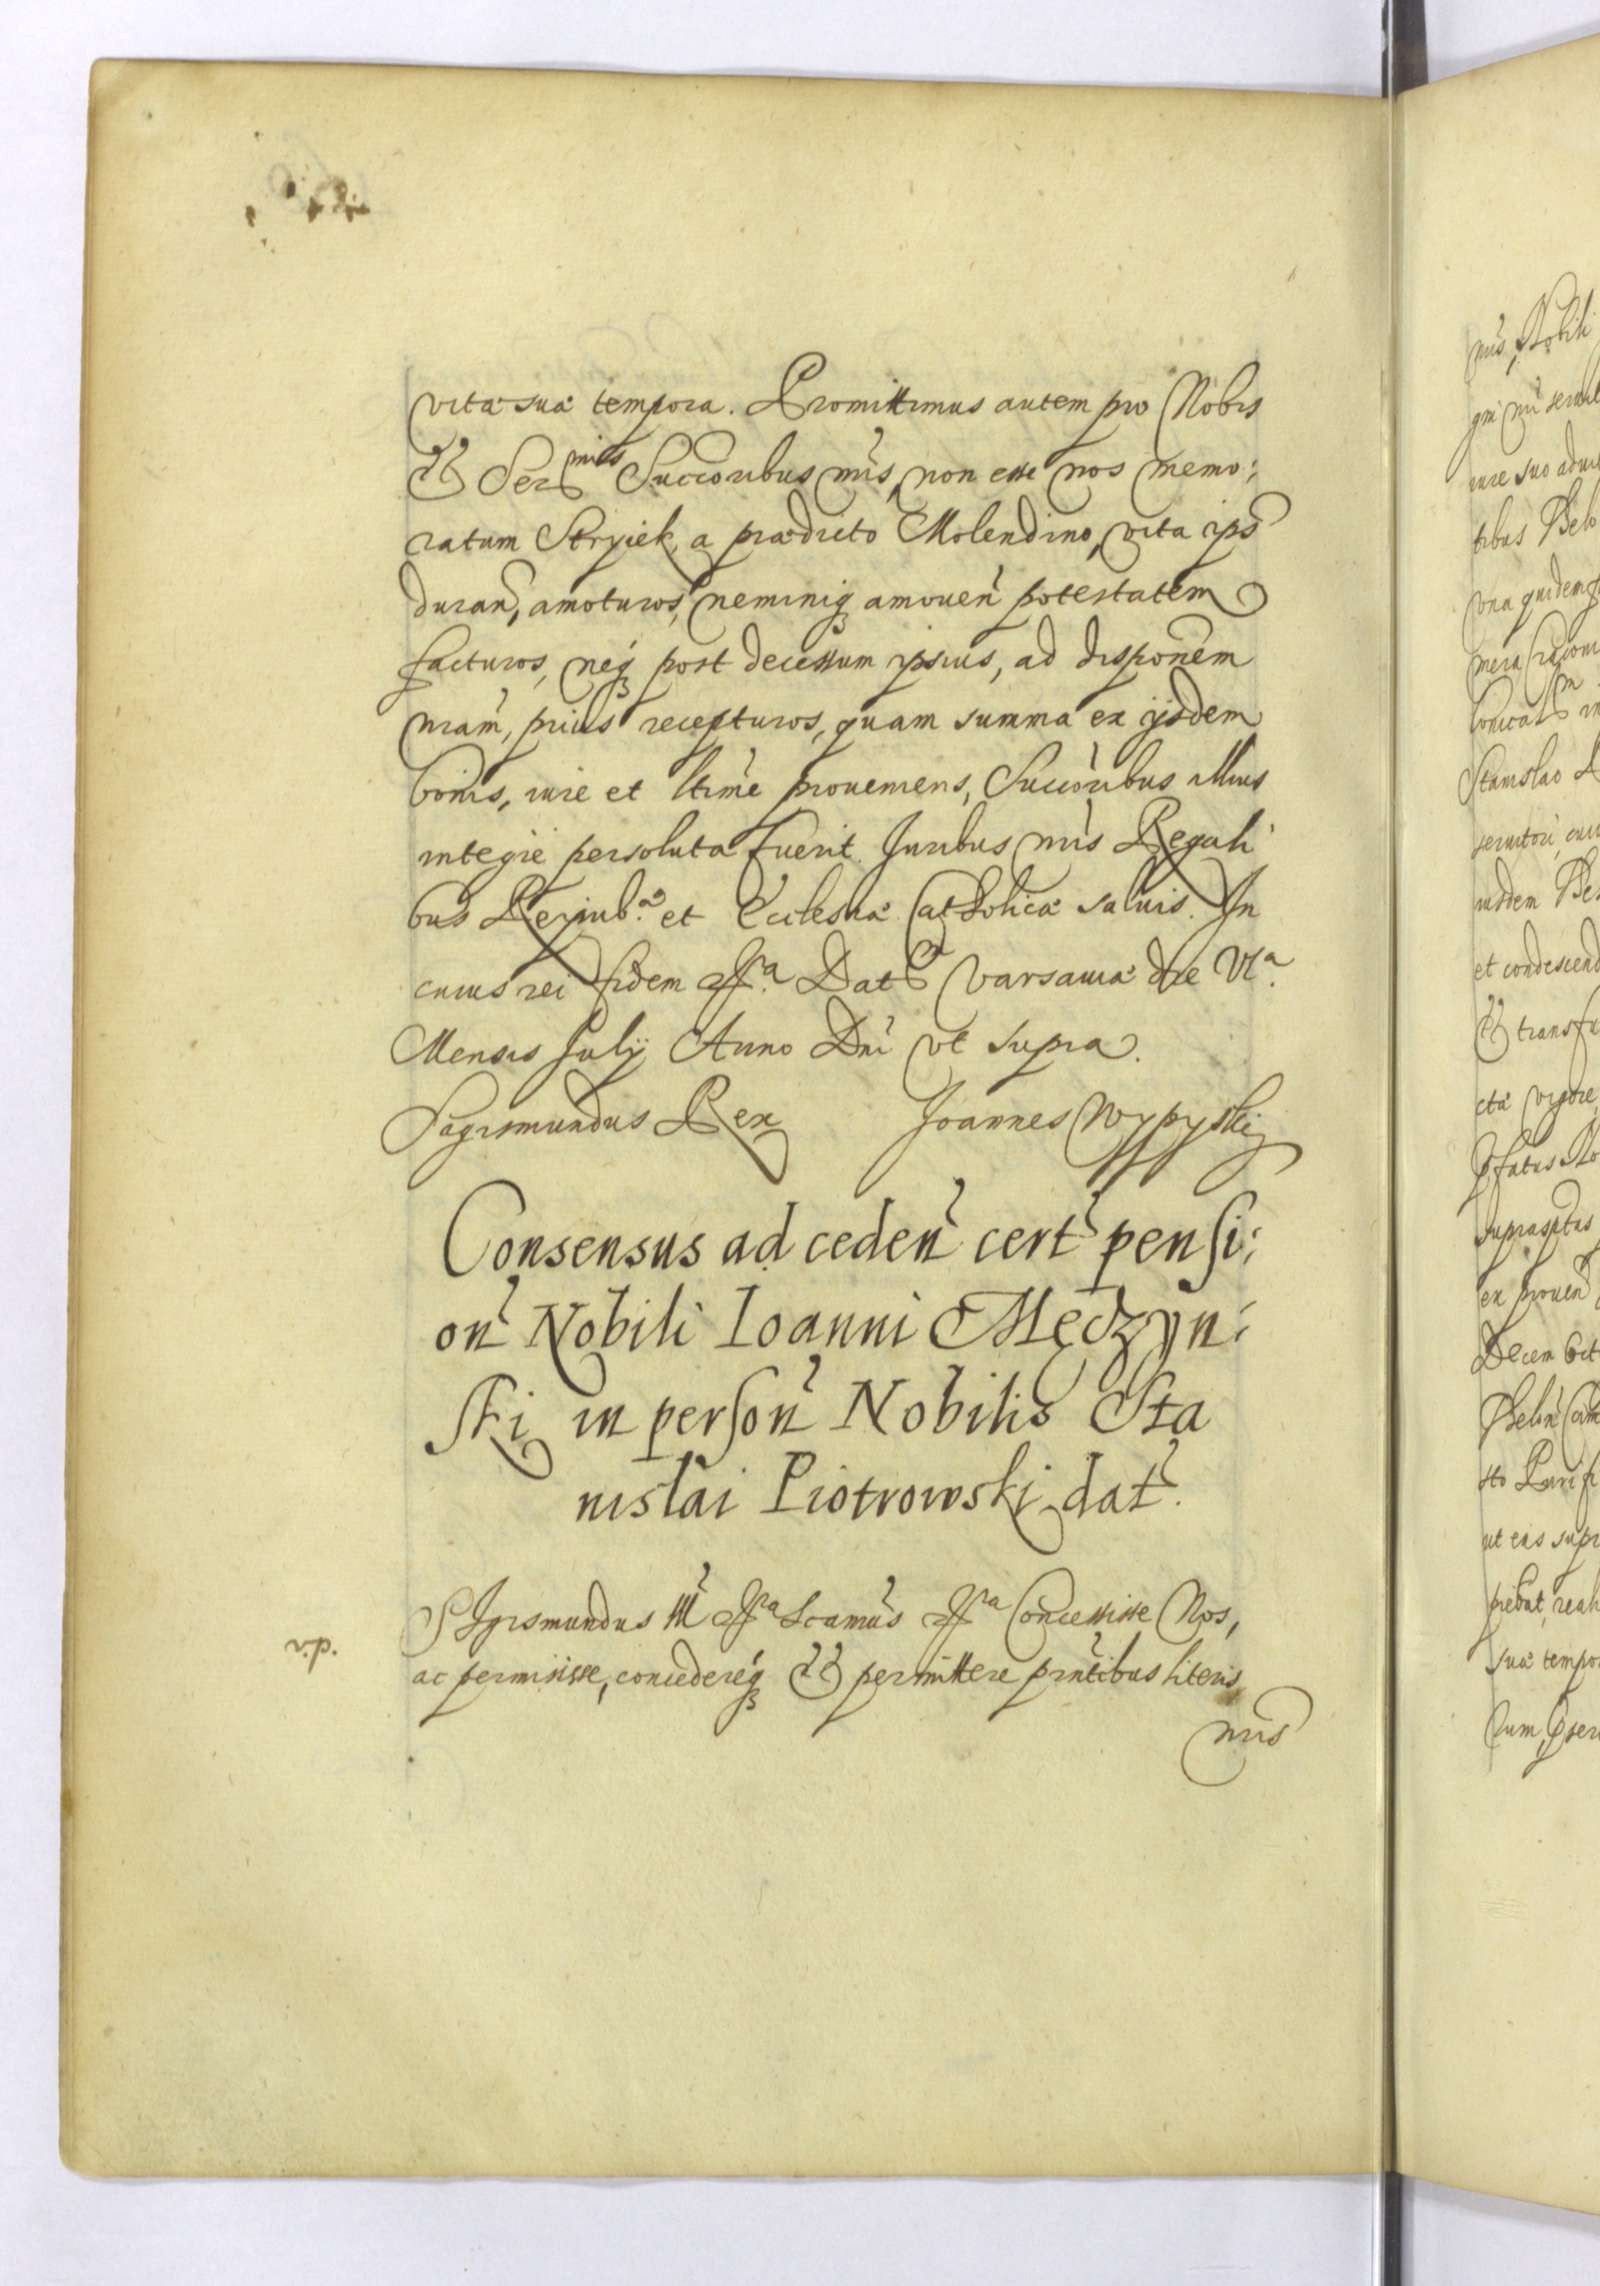 vitæ suæ tempora. Promittimus autem pro Nobis
et Ser^mis Succoribus nris, non esse nos memo:
ratum Stryiek a prædicto Molendino, vita ips
duran, amoturos, neminiq amouen potestatem
facturos, neq post decessum ipsius, ad disponem
nram, prius recepturos, quam summa ex ijsdem
bonis, iure et ltime proueniens, Succoribus illius
integre persoluta fuerit. Iuribus nris Regali
bus Reipub.æ et Ecclesiæ Catholicæ saluis. In
cuius rei fidem &^a. Dat^m Varsauiæ die VI^a.
Mensis Julij Anno Dni vt supra.
Sigismundus Rex Joannes Wypyski
Consensus ad ceden cert pensi:
on Nobili Ioanni Mędzyn:
ski in person Nobilis Sta
nislai Piotrowski dat.
SIgismundus III &^a Scamus &^a Concessisse Nos,
ac permisisse, concedereq et permittere prntibus literis
nris
mis, Nobili
iure suo
tibus
vna quidem
Stanislao
seruitori
iusdem
et condescend
et transfu
ex prouen
Decem
ut eas supr
suæ tempo